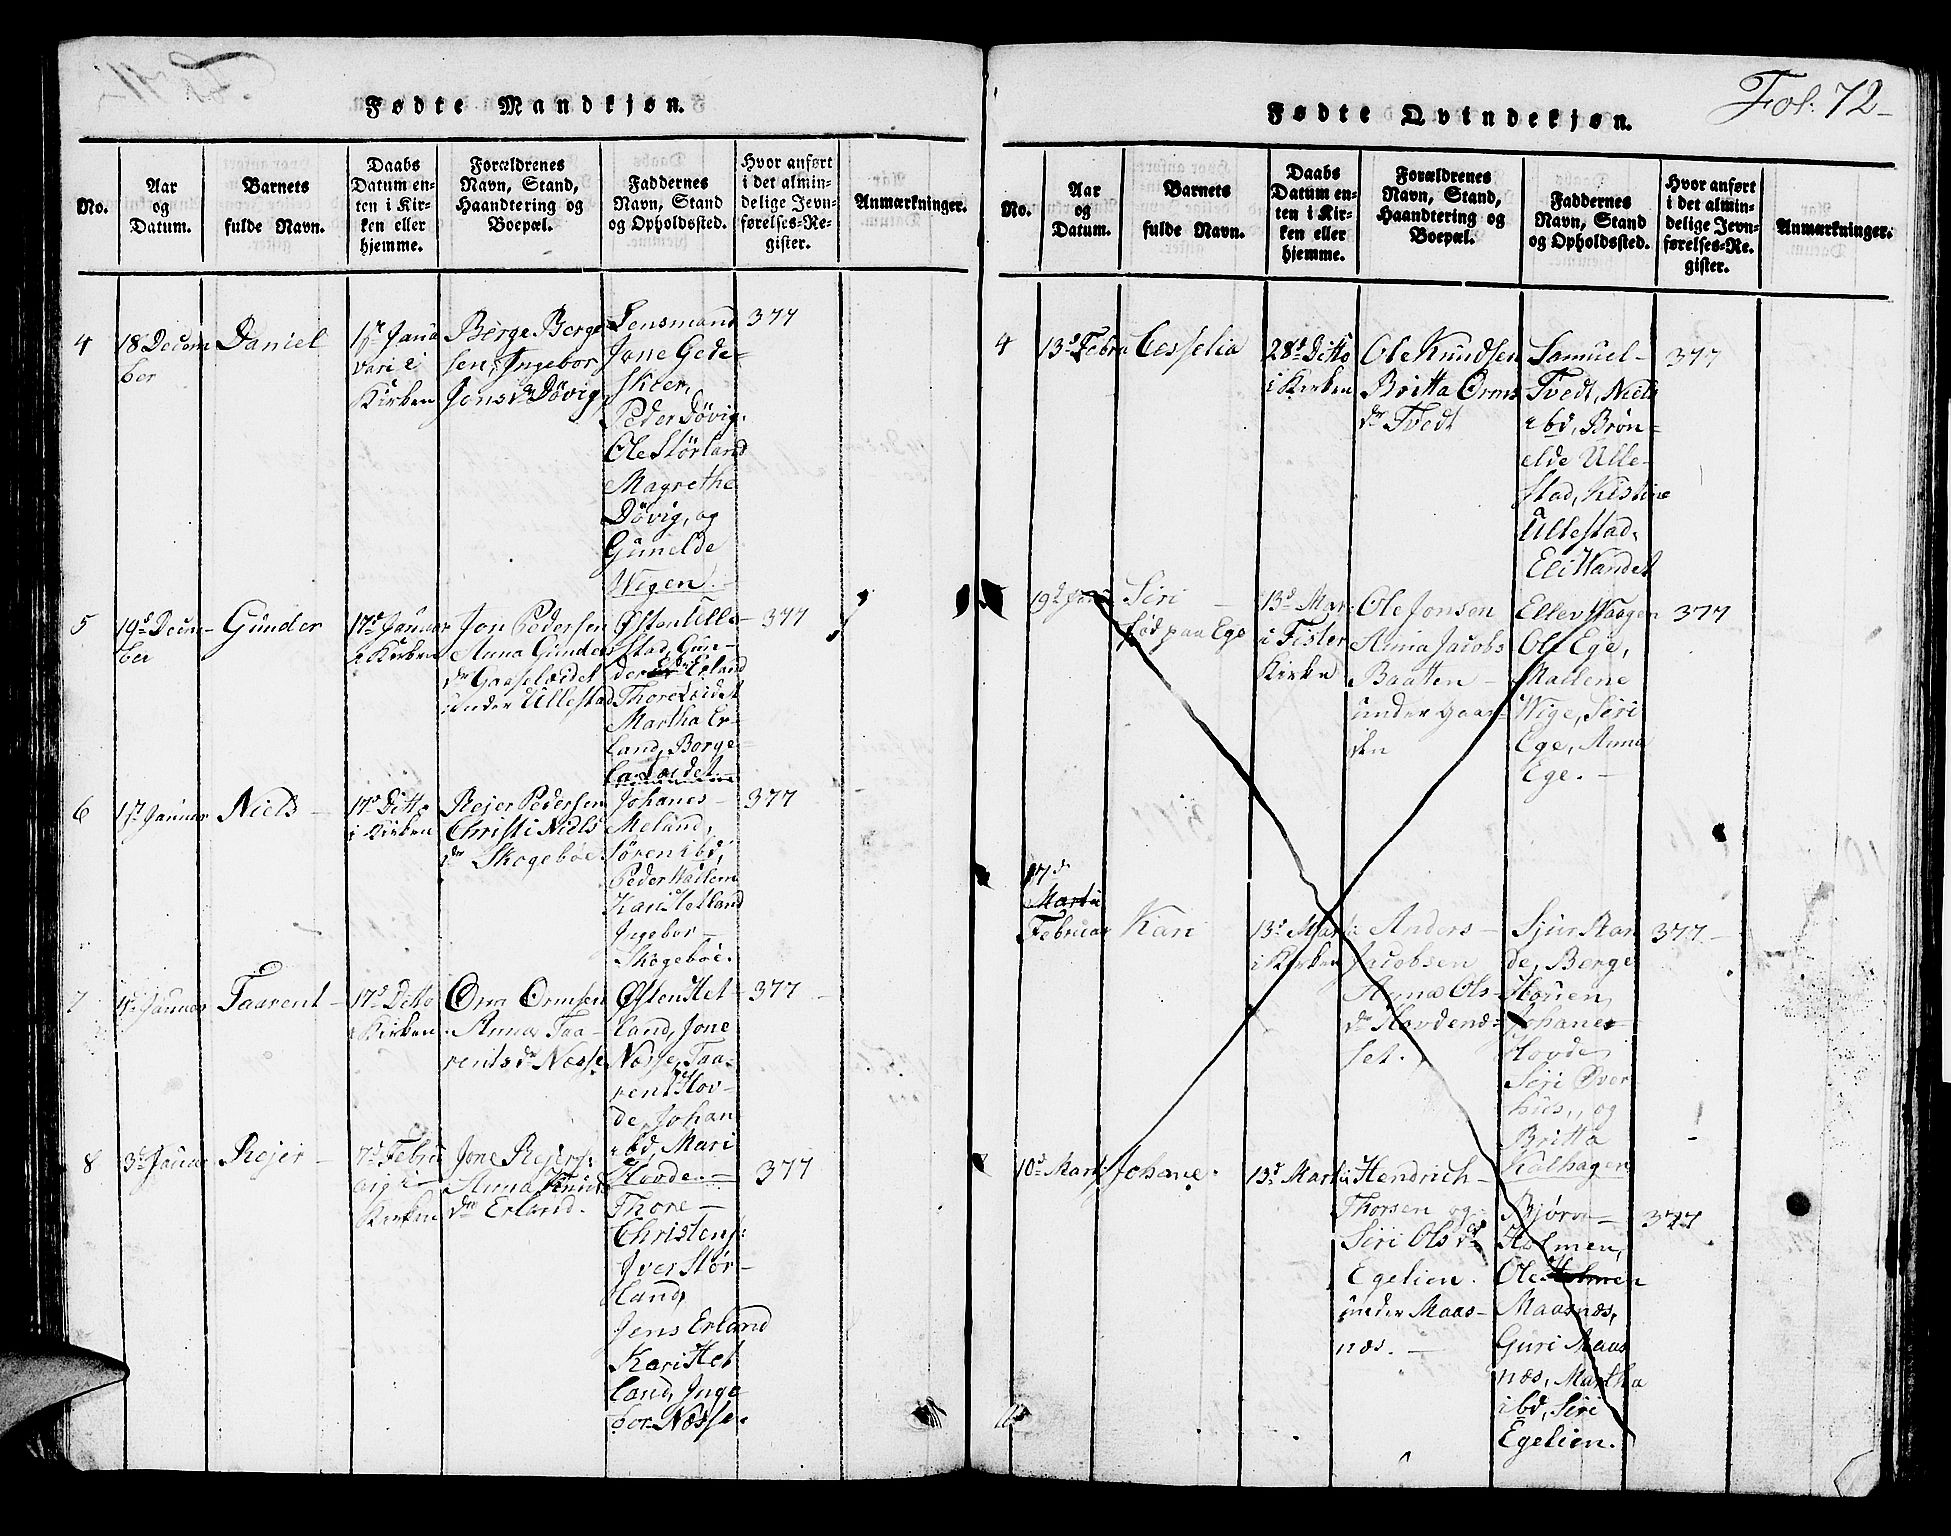 Fol: 72-
Fødte Mandkjøn.
No.
Aar
og
Datum.
Barnets
fulde Navn.
Daabs
Datum en-
ten i Kir-
ken eller
hjemme.
Forældrenes
Navn, Stand,
Haandtering og
Boepæl.
Faddernes
Navn, Stand
og Opholdssted.
Hvor anført
i det almin-
delige Jevn-
førelses-Re-
gister.
Anmærkninger.
4
18 Decem
ber
Daniel
17 Janu
vari i
Kirken
Børge Børge
sen, Ingebor
Jons dr Døvig
Lensmand
Jone Gede-
skier,
Peder Døvig.
Ole Størland
Magrethe
Døvig, og
Gunelde
Wigen.-
377
5
19d Decem-
ber
Gunder
17d Januar
i Kirken
Jon Pedersen
Anna Gunders
dr Gaaseløedet
under Ullestad
Østen Ulle-
stad, Gun-
der Erland
Thore Løedet
Martha Er-
land, Borge-
la Løedet
377
6
1d Januar
Niels-
17d Ditto
i Kirken
Rejer Pedersen
Christi Niels
dr Skogebøe
Johanes-
Meland,
Søren ibd,
Peder Hadlem
Kari Hetland
Ingebor-
Skogebøe.
377
7
Januar
Taarent-
17d Ditto
i Kirken
Orm Ormsen
Anna Taa-
rents dr Næsse
Østen Het-
land, Jone
Næsse, Taa-
rent Hov-
de, Johan
ibd, Mari
Hovde.-
377
8
3d Januar
Rejer-
7d Febru
arij i-
Kirken
Jone Rejers:
Anna Knuds
dr Erland.
Thore-
Christens:
Iver Stør-
land,
Jens Erland
Kari Het
land, Inge
bor Næsse.
377
Fødte Qvindekjøn.
No.
Aar
og
Datum.
Barnets
fulde Navn.
Daabs
Datum en-
ten i Kir-
ken eller
hjemme.
Forældrenes
Navn, Stand,
Haandtering og
Boepæl.
Faddernes
Navn, Stand
og Opholdssted.
Hvor anført
i det almin-
delige Jevn-
førelses-Re-
gister.
Anmærkninger.
4
13d Febru
Cesselia
28d Ditto
i Kirken
Ole Knudsen
Britta Orms
dr Tvedt
Samuel-
Tvedt, Niels
ibd, Brøn-
elde Ulle-
stad, Kistine
Ullestad,
Eli Handet
377
19d
Siri
født paa Ege
13d Mar:
i Fister
Kirke
Ole Jonsen
Anna Jacobs
Baaten-
under Gaar-
den
Ellev Haagen
Ole Ege,
Mallene
Wige, Siri
Ege, Anna
Ege.-
377
17d
Martii
Februar
Kari
13d Marti:
i Kirken
Anders-
Jacobsen
Anna Ols-
dr Hovdenæ-
set.
Sjur Ran
de, Berge
Houen,
Johanes
Hovde,
Siri Over-
hus, og
Britta
Kalhagen
377-
10d Marti
Johane.
13d Marti
Hendrich-
Thorsen og
Siri Ols dr
Egelien.
under Maas-
næs.-
Bjørn-
Holmen,
Ole Holmen
Maasnæs,
Guri Maas
næs, Martha
ibd, Siri
Egelien.
377